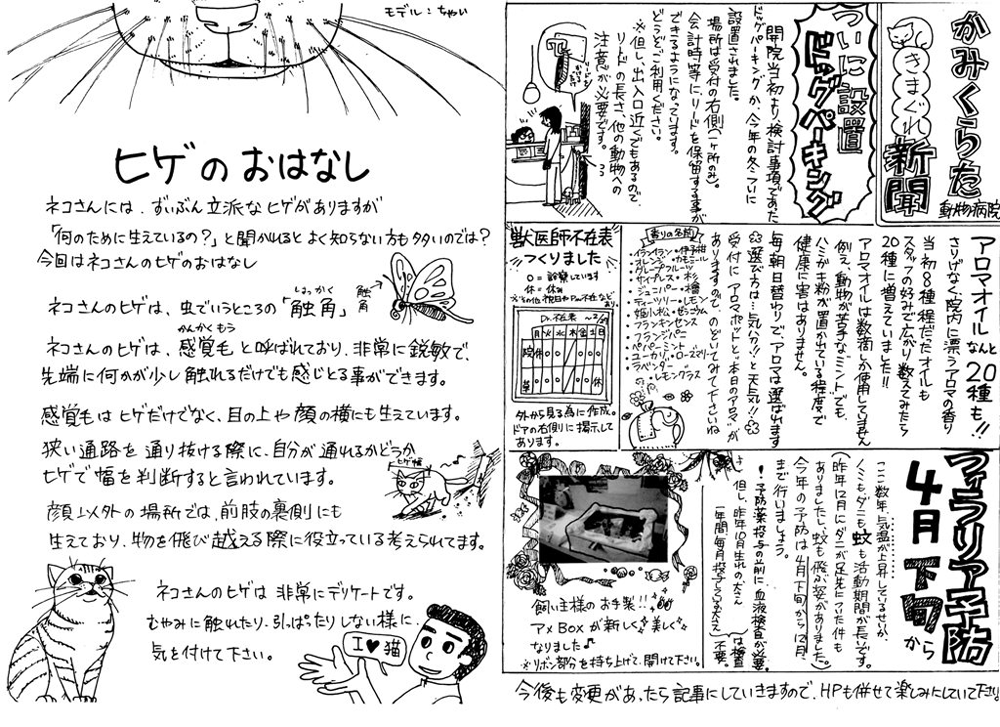 かみくらた
きまぐれ
新聞
動物病院
ついに設置
ドッグパーキング
開院当初より、検討事項であった
ドッグパーキングが、今年の冬ついに
設置されました。
場所は受付の右側(一ヶ所のみ)。
会計時等に、リードを保留する事が
できるようになっています。
どうぞご利用ください。
※但し、出入口近くでもあるので、
リードの長さ、他の動物への
注意が必要です。
アロマオイルなんと
20種も!!
さりげなく院内に漂うアロマの香り
当初8種程だったオイルも
スタッフの好みで広がり数えてみたら
20種に増えていました!!
アロマオイルは数滴しか使用してません
例え、動物が苦手なミントでも、
ハミガキ粉が置かれている程度で
健康に害はありません。
毎朝日替りでアロマは選ばれます
選び方は…気分!!と天気!!
受付にアロマポットと、本日のアロマが
ありますので、のぞいてみて下さいね
香りの名前
・イランイラン・伊予柑
・オレンジ・カモミール
・グレープフルーツ
・サイプレス・杉
・ジュニパー・檜
・ティーツリー・レモン
・姫小松・ゼラニウム
・フランキンセンス
・フランジパニ
・ペパーミント
・ユーカリ・ローズマリー
・ラベンダー
・レモングラス
獣医師不在表
つくりました
○=診察しています
休=休診
Dr.不在表
月火水木金土日
外から見る為に作成。
ドアの右側に掲示して
あります。
フィラリア予防
4月下旬から
ここ数年、気温が上昇しているせいか、
ノミもダニも蚊も活動期間が長いです。
(昨年12月にダニが足先についた件も
ありましたし、蚊も飛ぶ姿がありました。)
今年の予防は4月下旬から12月
まで行いましょう。
!予防薬投与の前に血液検査が必要。
但し、昨年10月生まれの犬さん
一年間毎月投与している犬さん
は検査
不要。
飼い主様のお手製!!
アメBOXが新しく美しく
なりました♪
※リボン部分を持ち上げて、開けて下さい。
今後も変更があったら記事にしていきますので、HPも併せて楽しみにしていて下さい
モデル:ちゃい
ヒゲのおはなし
ネコさんには、ずいぶん立派なヒゲがありますが
「何のために生えているの?」と聞かれるとよく知らない方も多いのでは?
今回はネコさんのヒゲのおはなし
ネコさんのヒゲは、虫でいうところの「触角」
しょっかく
触角
ネコさんのヒゲは、感覚毛と呼ばれており、非常に鋭敏で、
かんかくもう
先端に何かが少し触れるだけでも感じとる事ができます。
感覚毛はヒゲだけでなく、目の上や顔の横にも生えています。
狭い通路を通り抜ける際に、自分が通れるかどうか
ヒゲで幅を判断すると言われています。
ヒゲ幅
顔以外の場所では、前肢の裏側にも
生えており、物を飛び越える際に役立っている考えられてます。
ネコさんのヒゲは非常にデリケートです。
むやみに触れたり、引っぱったりしない様に、
気を付けて下さい。
I♥猫